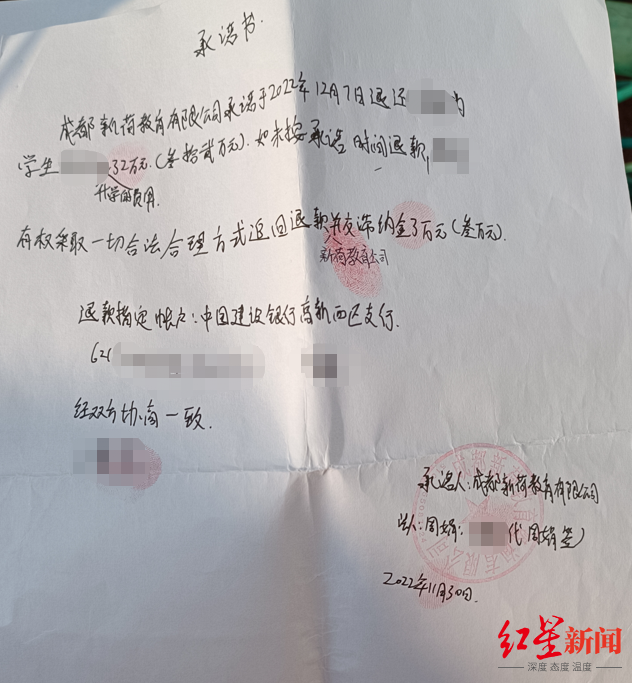 承诺书.
成都新荷教育有限公司承诺于2022年12月7日退还 为
学生 32万元.(叁拾贰万元).如未按承诺时间退款,
升学的费用.
有权采取一切合法合理方式追回退款并交滞纳金3万元(叁万元).
新荷教育公司
退款指定帐户:中国建设银行高新西区支行.
621
经双方协商一致.
承诺人:成都新荷教育有限公司
法人:周娟: 代周娟签)
2022年11月30日.
红星新闻
深度 态度 温度